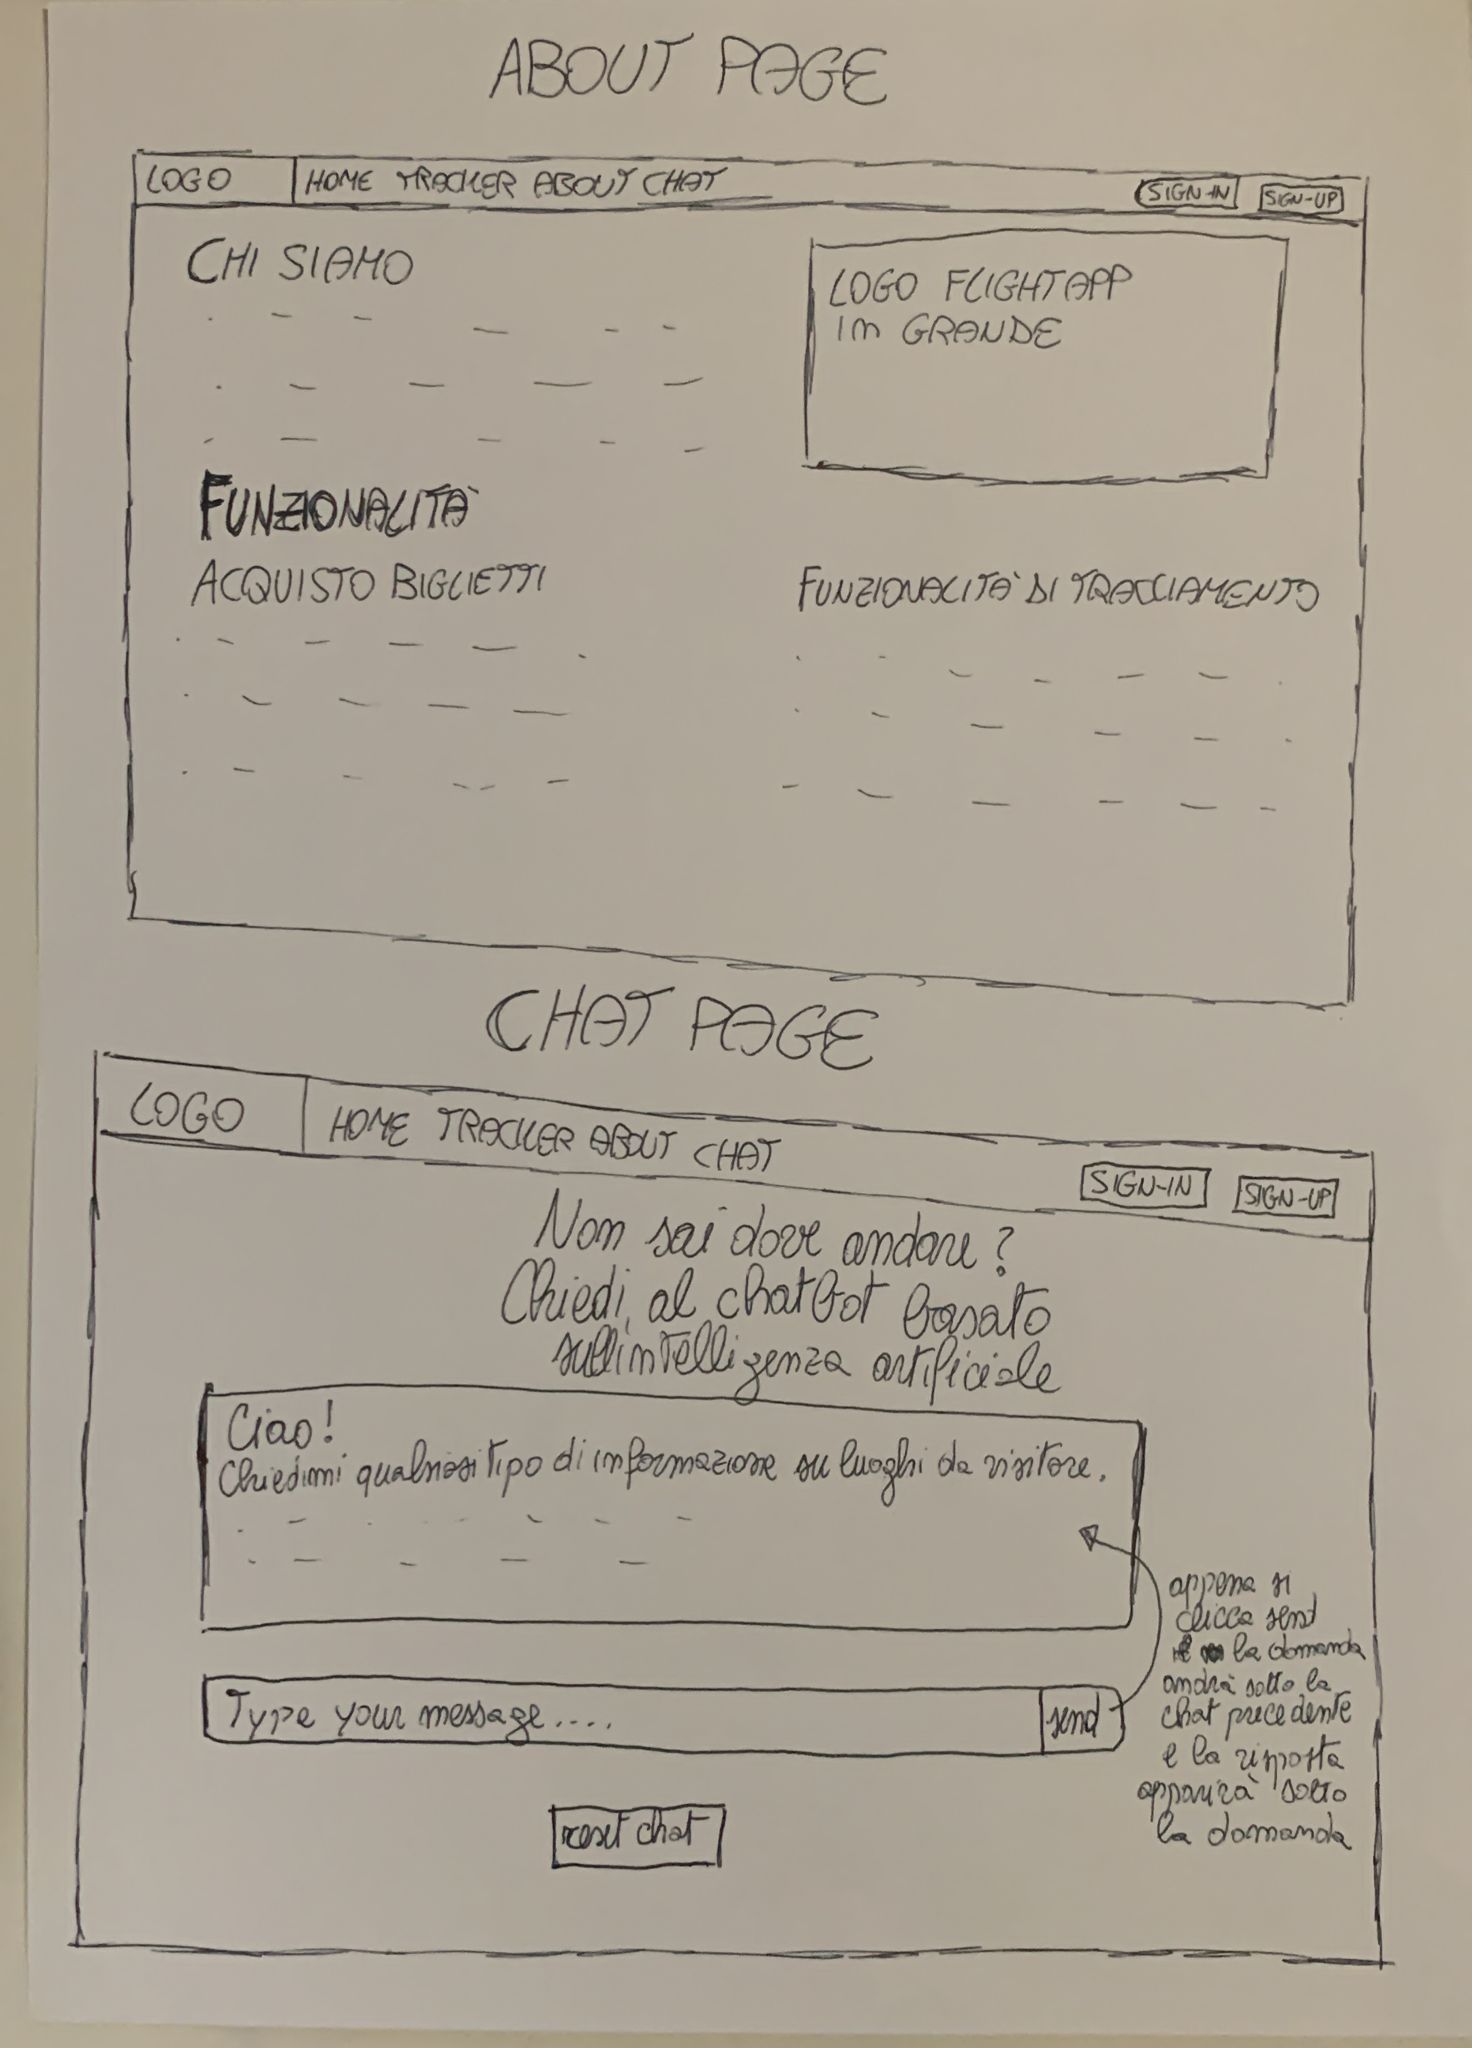 ABOUT PAGE
LOGO HOME TRACKER ABOUT CHAT SIGN-IN SIGN-UP
CHI SIAMO
LOGO FLIGHTAPP
in GRANDE
FUNZIONALITÀ
ACQUISTO BIGLIETTI
FUNZIONALITÀ DI TRACCIAMENTO
CHAT PAGE
LOGO HOME TRACKER ABOUT CHAT SIGN-IN SIGN-UP
Non sai dove andare?
Chiedi al chatbot basato
sull'intelligenza artificiale
Ciao!
Chiedimi qualsiasi tipo di informazione su luoghi da visitare.
Type your message.... send
appena si
clicca send
la domanda
andrà sotto la
chat precedente
e la risposta
apparirà sotto
la domanda
reset chat